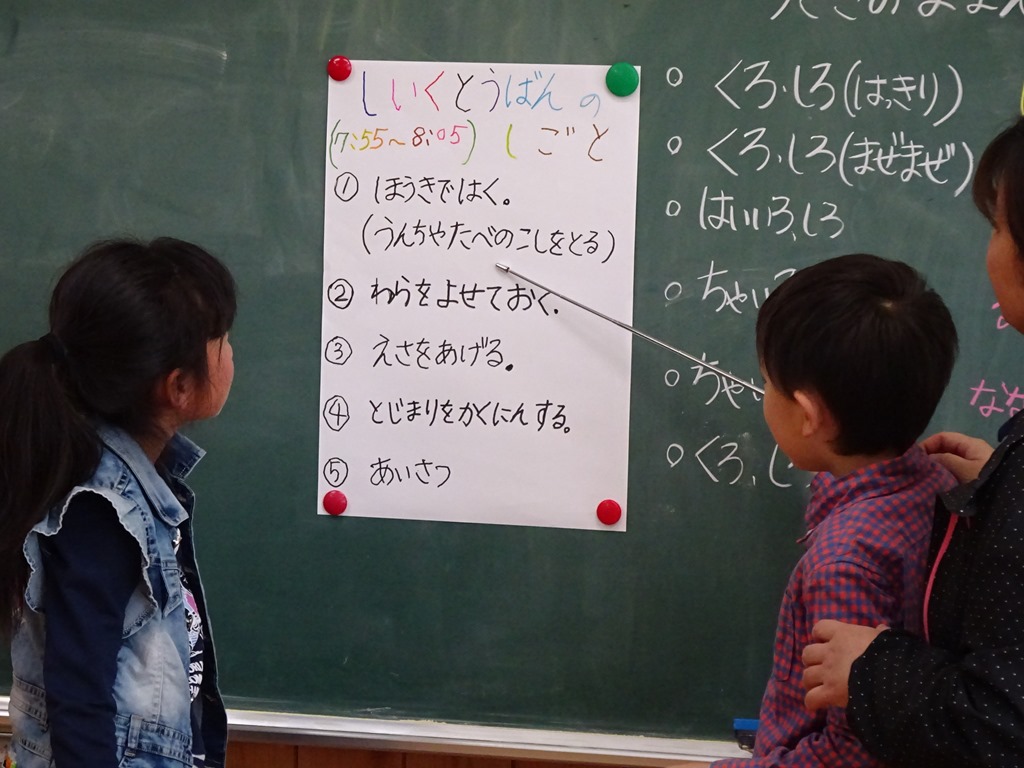 しいくとうばんの
(7:55～8:05) しごと
① ほうきではく。
(うんちやたべのこしをとる)
② わらをよせておく.
③ えさをあげる.
④ とじまりをかくにんする。
⑤ あいさつ
○ くろ.しろ(はっきり)
○ くろ.しろ(まぜまぜ)
○ はいいろ,しろ
○ ちゃい
○ ちゃい
○ くろ,し